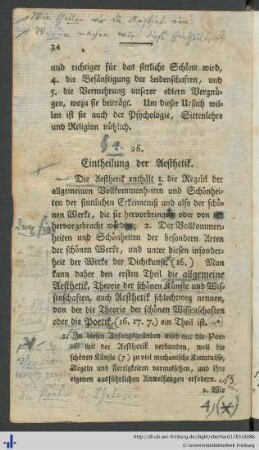 Wie theilen wir die Aesthetik ein?
Warum machen wir diese
24
und richtiger für das sittliche Schöne wird,
4. die Besänftigung der Leidenschaften, und
5. die Vermehrung unserer edlern Vergnü-
gen, wozu sie beiträgt. Um dieser Ursach wil-
len ist sie auch der Psychologie, Sittenlehre
und Religion nützlich.
26.
Eintheilung der Aesthetik.
Die Aesthetik enthält 1. die Regeln der
allgemeinen Vollkommenheiten und Schönhei-
ten der sinnlichen Erkenntniß und also der schö-
nen Werke, die sie hervorbringen oder von ihr
hervorgebracht werden; 2. Der Vollkommen-
heiten und Schönheiten der besondern Arten
der schönen Werke, und unter diesen insonder-
heit der Werke der Dichtkunst. (16.) Man
kann daher den ersten Theil die allgemeine
Aesthetik, Theorie der schönen Künste und Wis-
senschaften, auch Aesthetik schlechtweg nennen,
von der die Theorie der schönen Wissenschaften
oder die Poetik (16. 17. 7.) ein Theil ist.
1. In diesen Anfangsgründen wird nur die Poe-
tik mit der Aesthetik verbunden, weil die
schönen Künste (7) zu viel mechanische Kenntnisse,
Regeln und Fertigkeiten voraussetzen, und ihre
eigenen ausführlichen Anweisungen erfodern.
2. Wir
http://dl.ub.uni-freiburg.de/diglit/eberhard1783/0088
© Universitätsbibliothek Freiburg